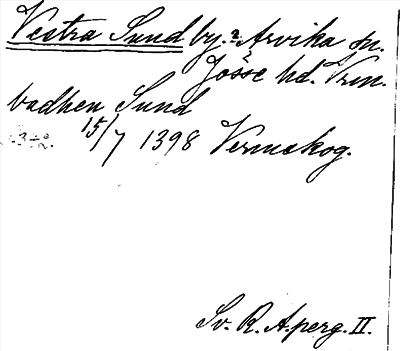 Vestra Sund by. i Arvika sn.
Jösse hd. Vrm.
badhen Sund
15/7 1398 Vermskog.
Sv. R. A. perg. II.